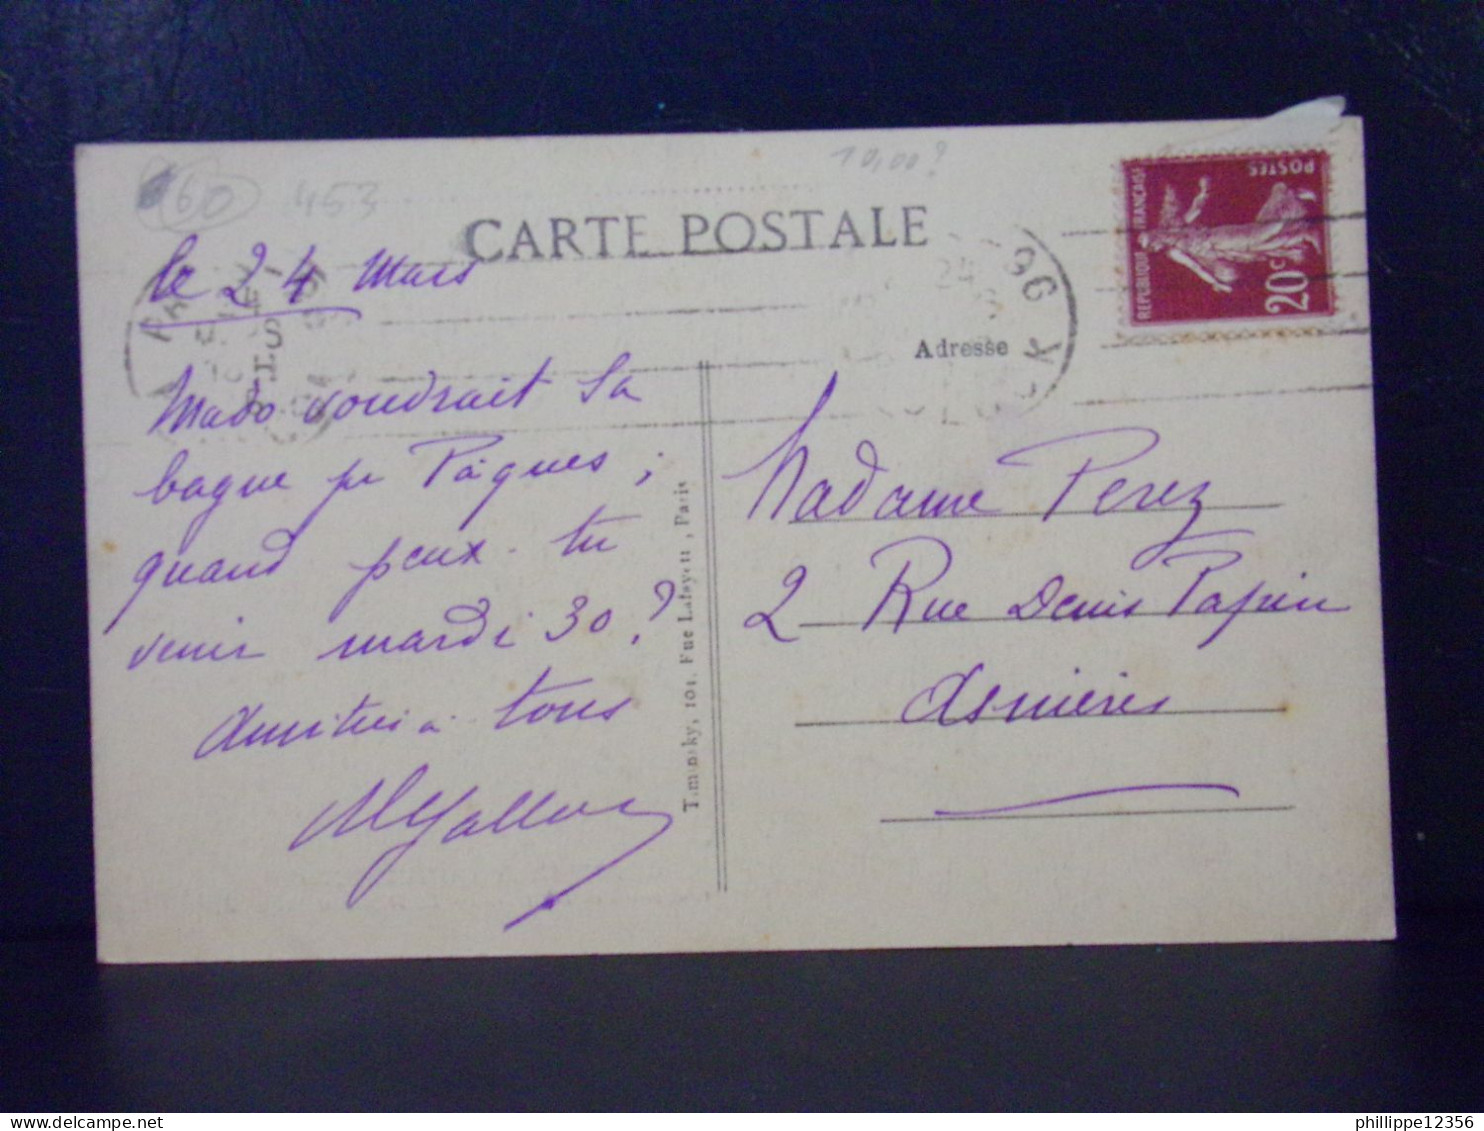 60
453
10,00?
CARTE POSTALE
le 24 Mars
Mado voudrait sa
bague pr Pâques ;
quand peux-tu
venir mardi 30 ?
Amitiés à tous
Adresse
Madame Perez
2 Rue Denis Papin
Asnières
101, Rue Lafayette, Paris
REPUBLIQUE FRANÇAISE
POSTES
20c
delcampe.net
phillippe12356